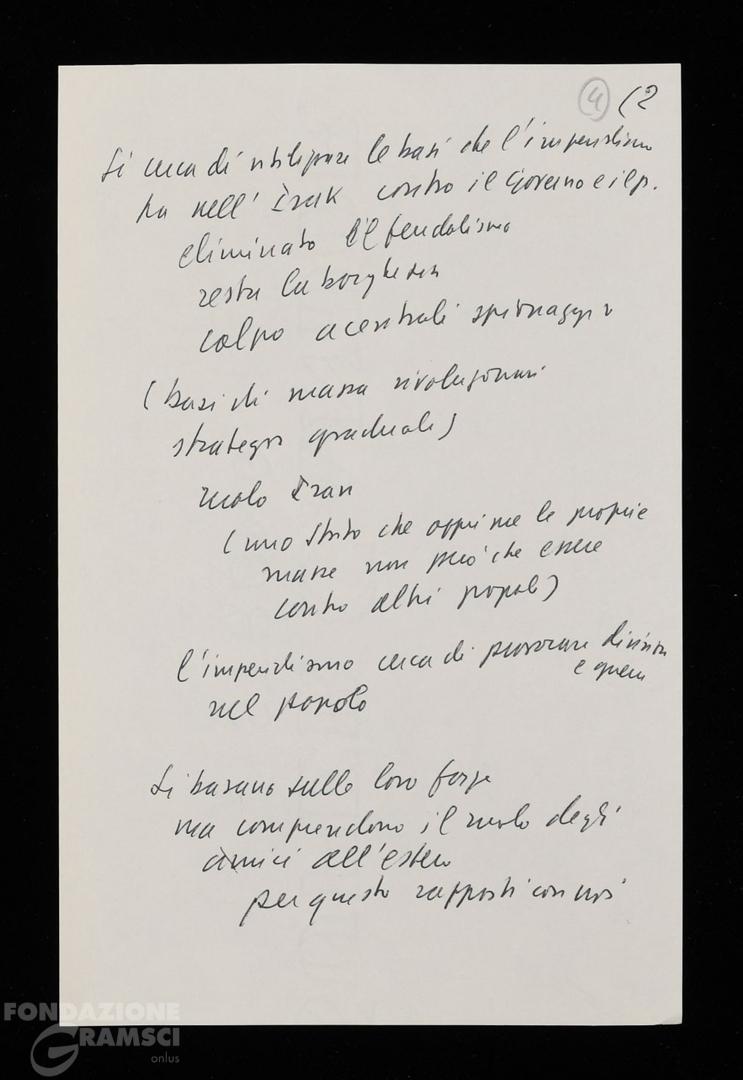 4 (2
Si cerca di utilizzare le basi che l'imperialismo
ha nell' Irak contro il Governo e il p.
eliminato il feudalismo
resta la borghesia
colpo a centrali spionaggio
(basi di massa rivoluzionari
strategia graduale)
ruolo Iran
(uno Stato che opprime le proprie
masse non può che essere
contro altri popoli)
l'imperialismo cerca di provocare divisioni
e guerra
nel popolo
Si basano sulle loro forze
ma comprendono il ruolo degli
amici all'estero
per questo rapporti con noi
FONDAZIONE
GRAMSCI
onlus